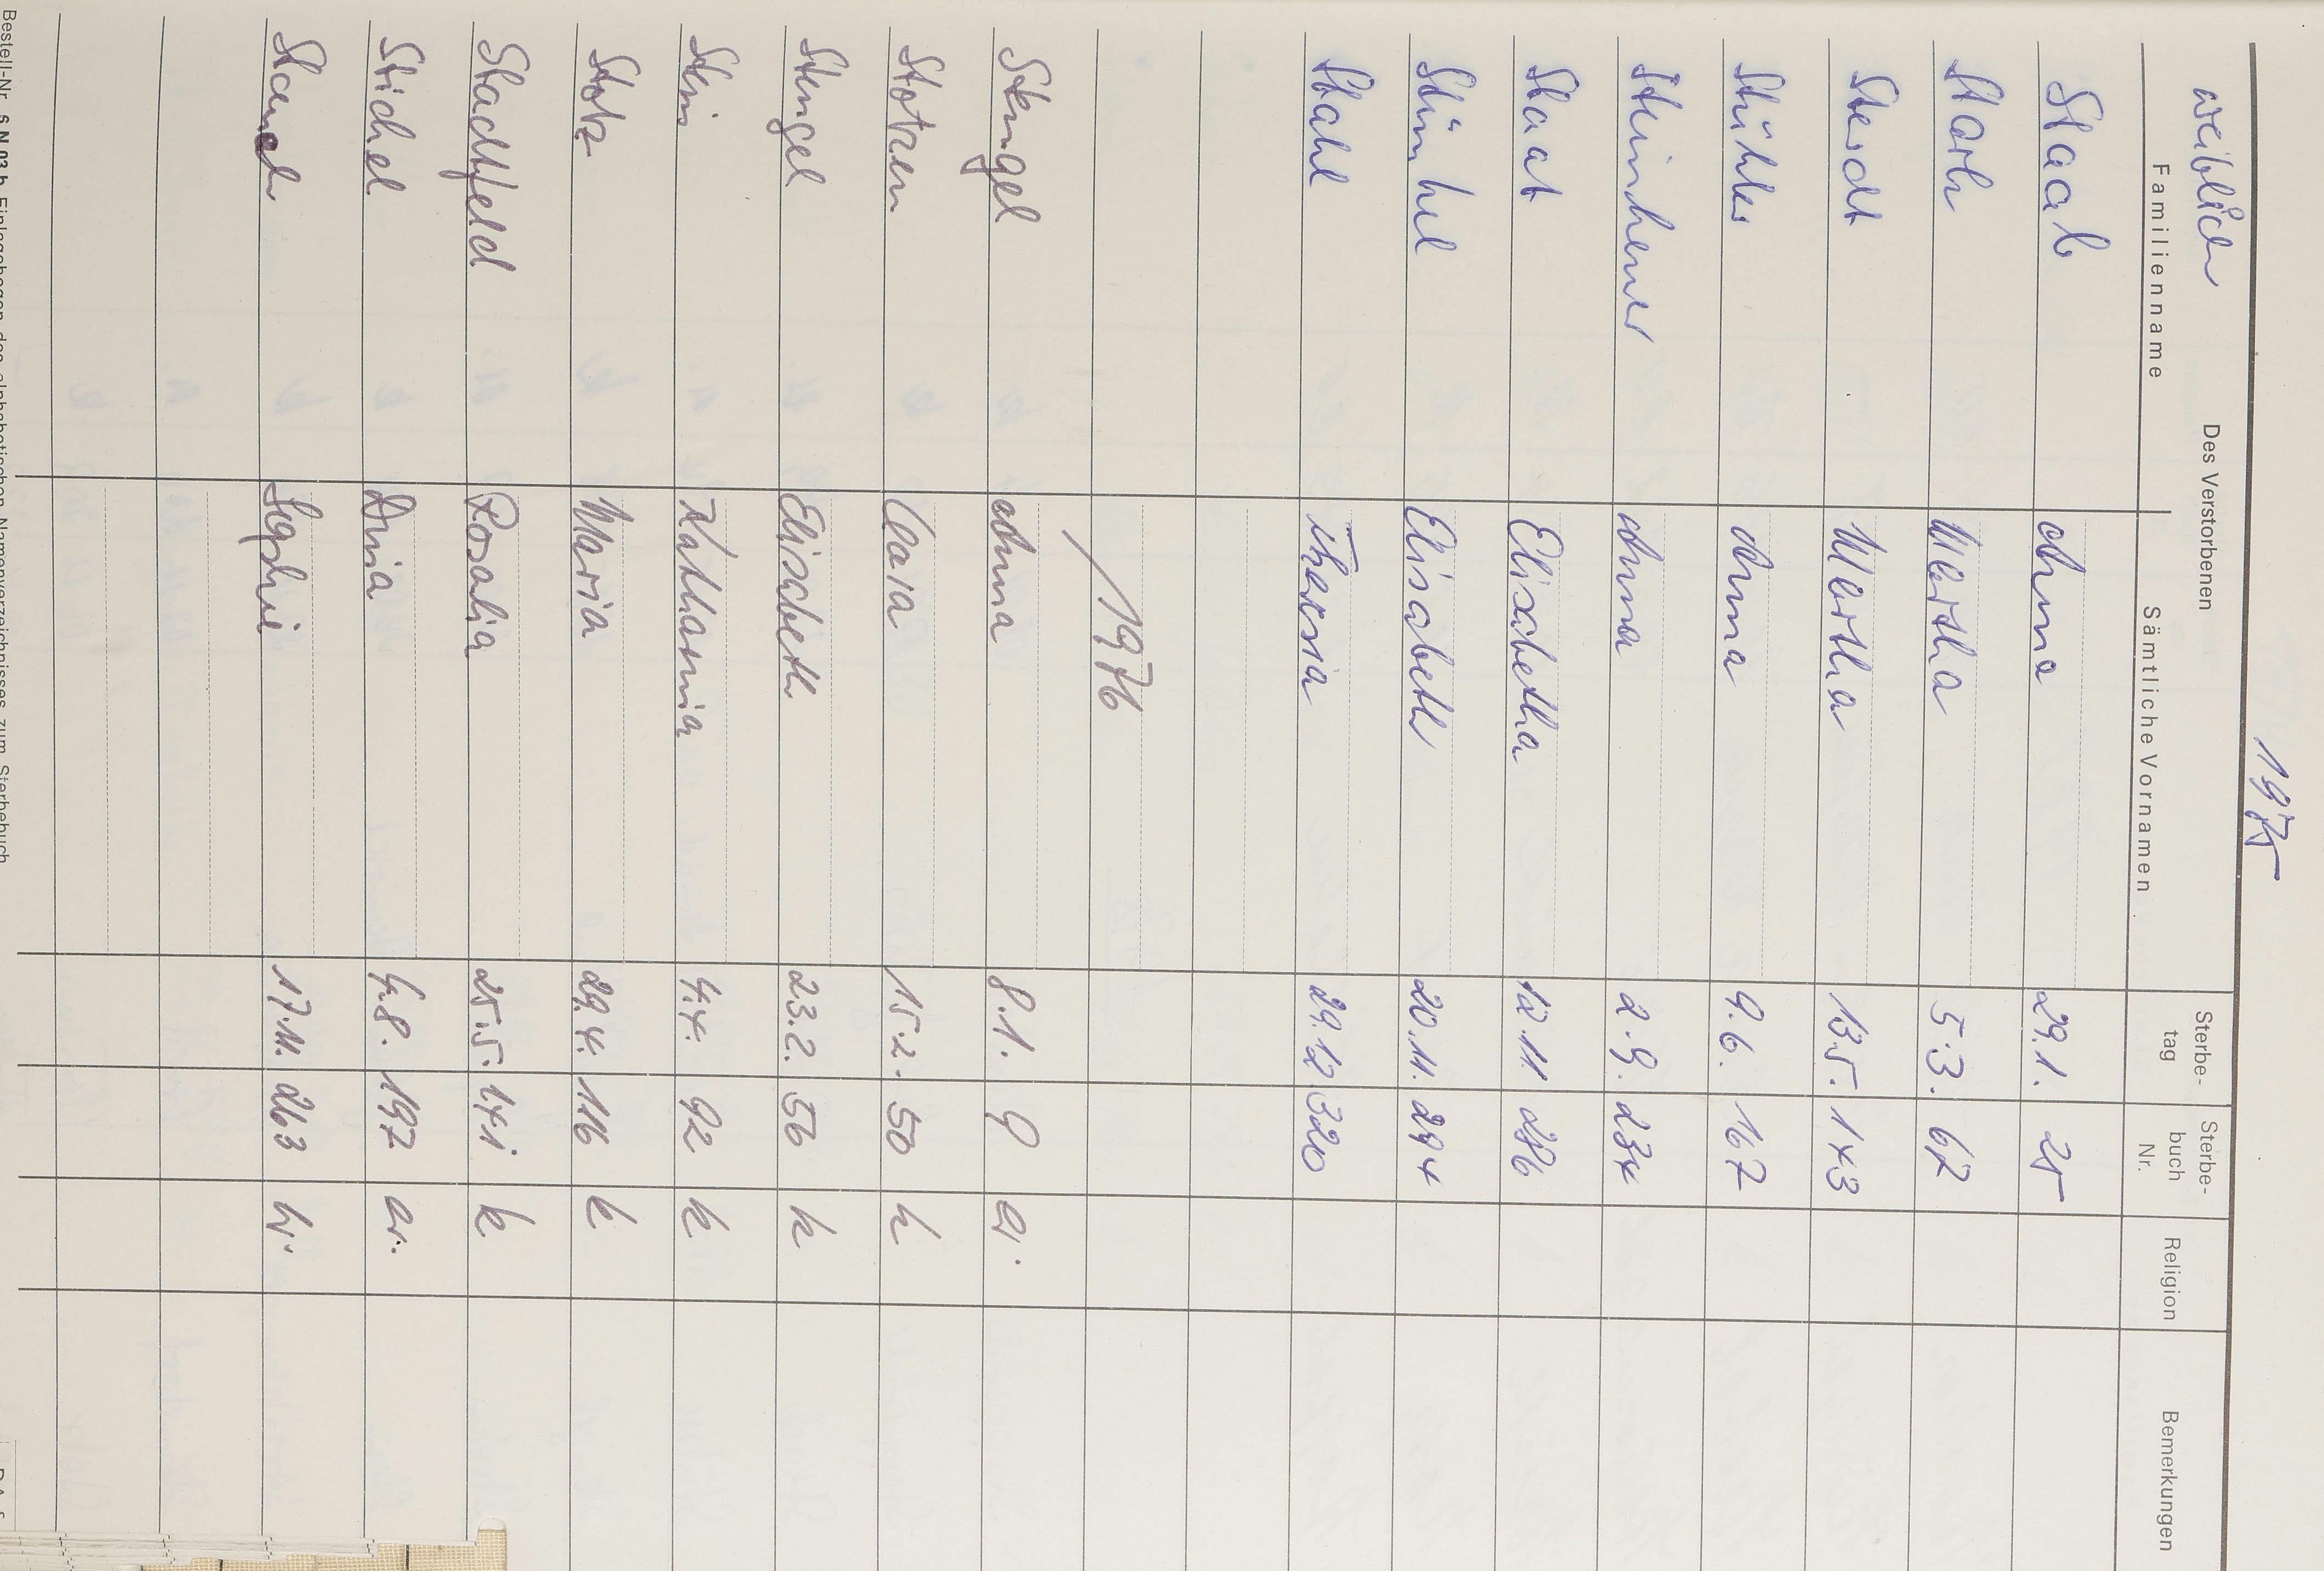 1975
weiblich
Des Verstorbenen
Familienname Sämtliche Vornamen Sterbe-tag Sterbe-buch Nr. Religion Bemerkungen
Staab Anna 29.1. 25
Stark Martha 5.3. 67
Sterdt Martha 13.5. 143
Stühler Anna 9.6. 167
Steinheuer Anna 2.9. 234
Staat Elisabetha 12.11. 286
Stümhel Elisabeth 20.11. 294
Stahl Theresia 29.12. 320
1976
Stengel Anna 8.1. 9 ev.
Stotzem Clara 15.2. 50 k
Stengel Elisabeth 23.2. 56 k
Stein Katharina 4.4. 92 k
Stotz Maria 29.4. 116 k
Stadtfeld Rosalia 25.5. 141 k
Stichel Anna 4.8. 197 ev.
Sophie 17.11. 263
Bestell-Nr. S N 03 b Einlagebogen des alphabetischen Namenverzeichnisses zum Sterbebuch